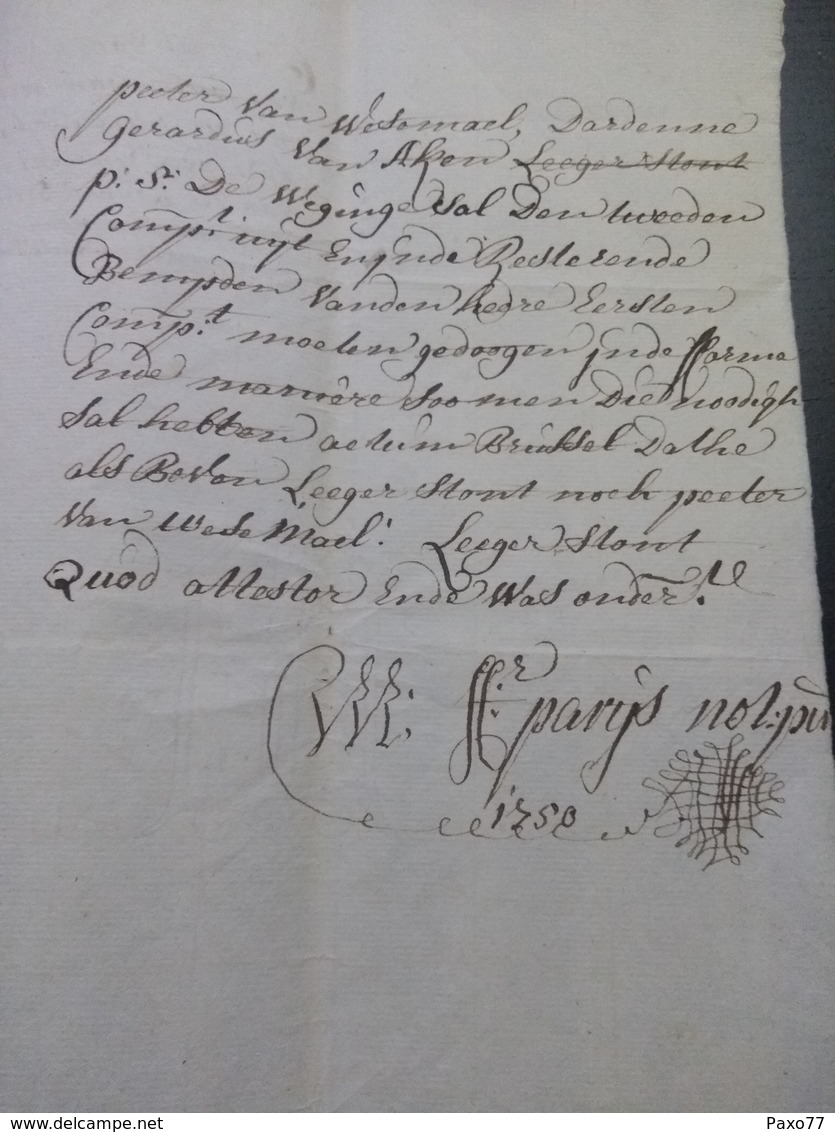 peeter Van Wesemael, Dardenne
Gerardus Van Aken Leeger Stont
p: S: De Weginge Sal Den tweeden
Comp:t uijt Ende Resterende
Bempden Vanden hedre Eersten
Comp:t moeten gedoogen jnde fforme
Ende maniere Soo men Die noodigh
Sal hebben actum Brussel Dathe
als Boven Leeger Stont noch peeter
Van Wesemael: Leeger Stont
Quod attestor Ende Was onder:t
parijs not: pu
1750
www.delcampe.net
Paxo77